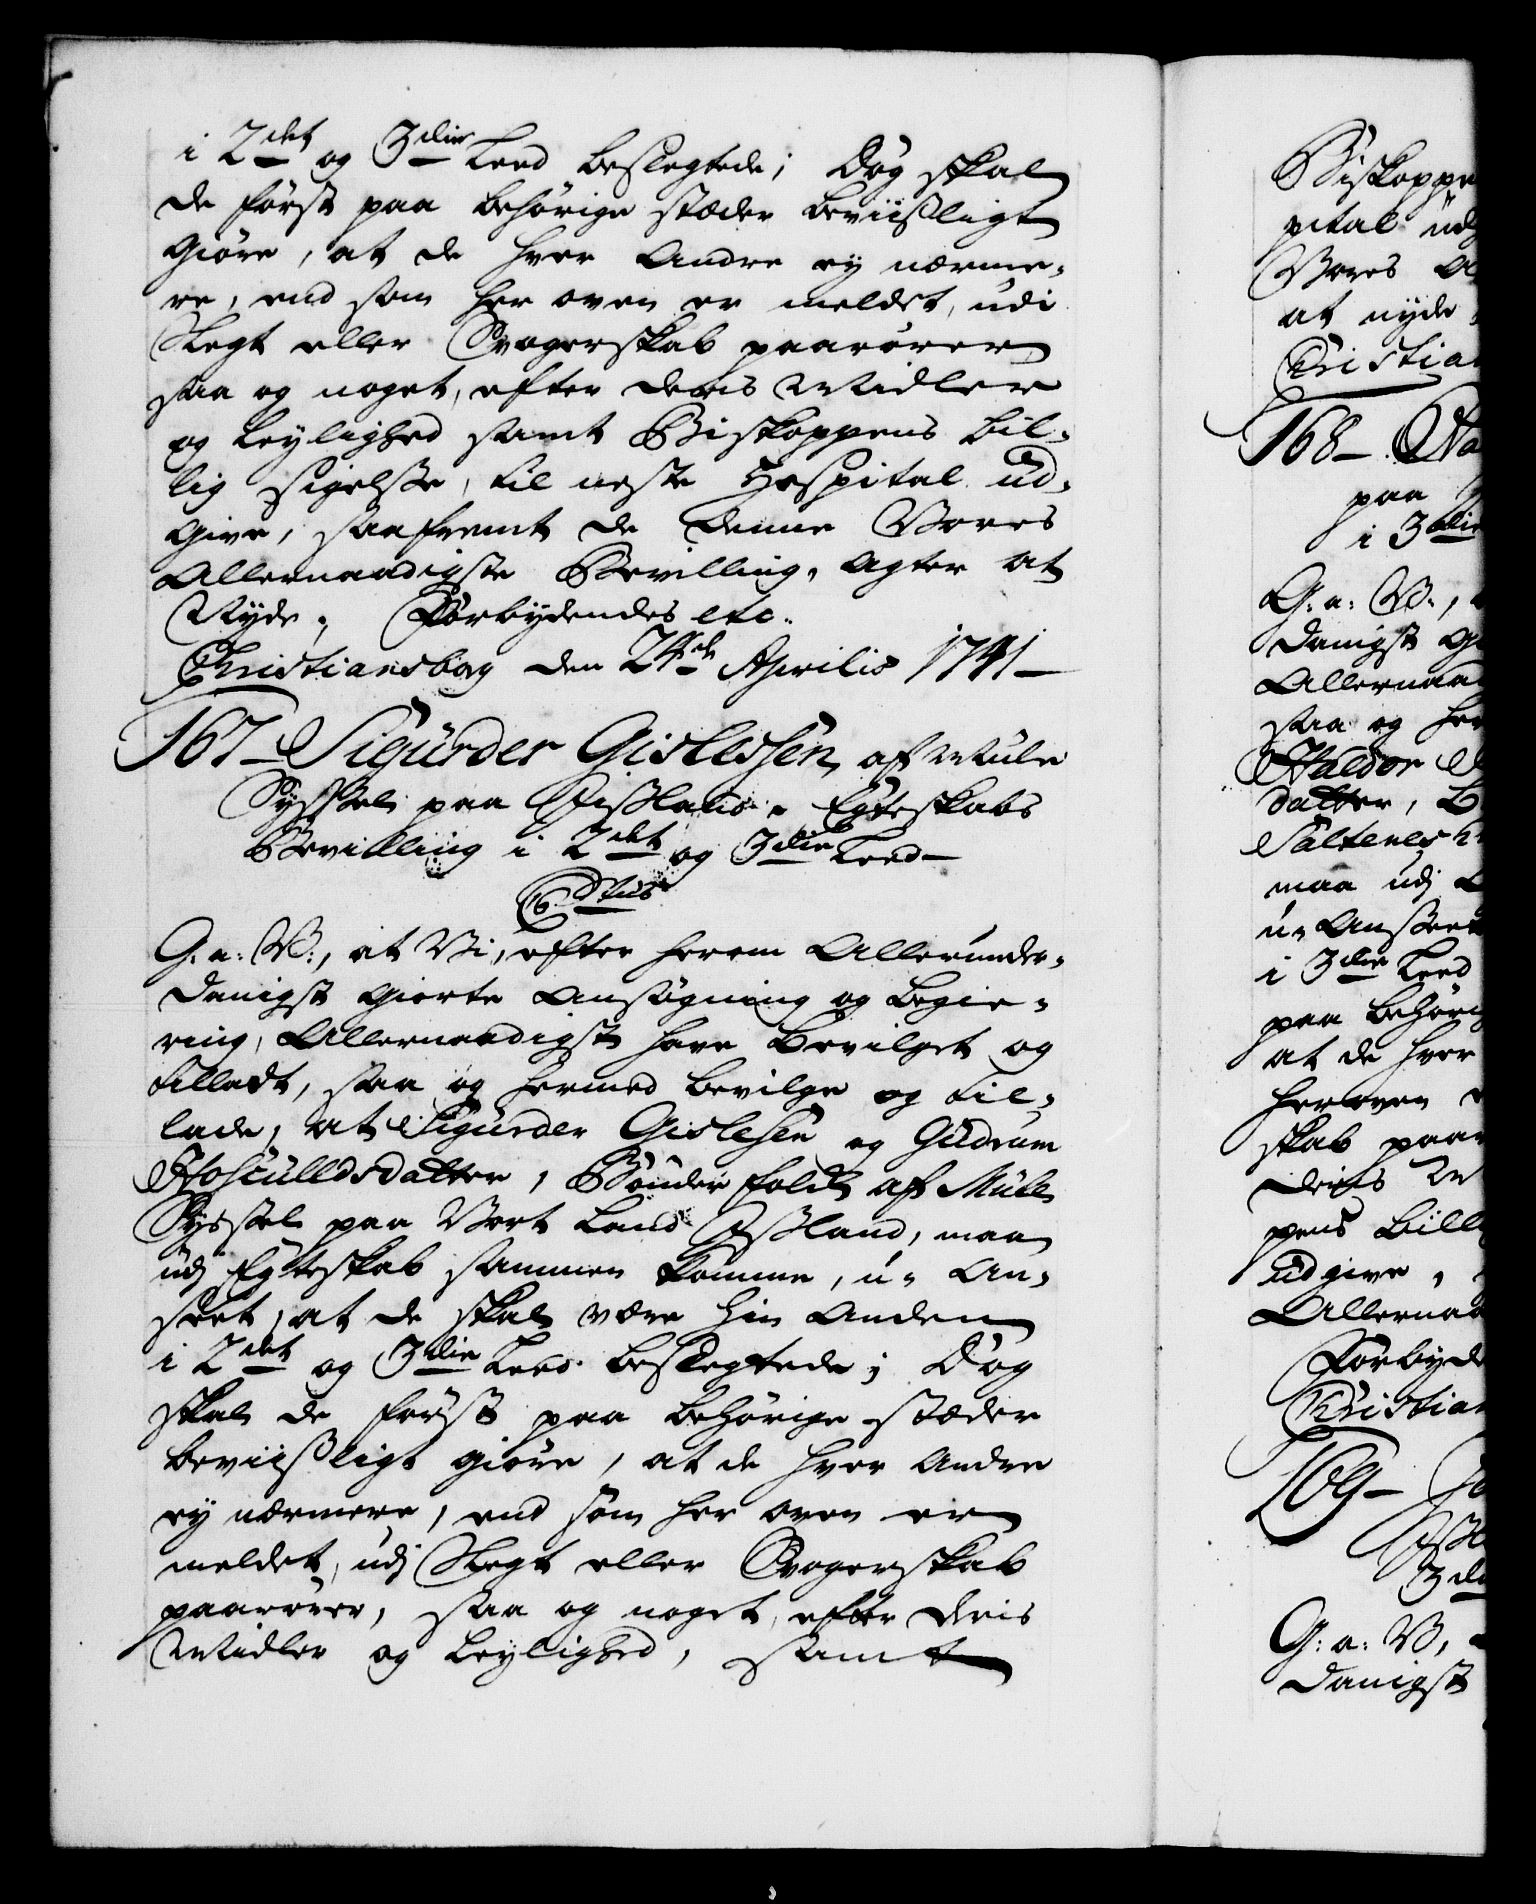 i 2det og 3die Leed beslegtede; Dog skal
de først paa behørige stæder beviisligt
giøre, at de hver Andre ey nærme-
re, end som her oven er meldet, udi
Slegt eller Svogerskab paarører
saa og noget, efter deris Midler
og leylighed samt Biskoppens bil-
lig sigelse, til neste Hospital ud-
give, saafremt de denne Vores
Allernaadigste Bevilling, agter at
Nyde; Forbydendes etc.
Christiansborg den 24de Aprilis 1741
167 Sigurder Gislessen, af Mule
Syssel paa Iisland, Egteskabs
Bevilling i 2det og 3die Leed
G. a: V:, at Vi, efter herom Allerunder-
danigst giorte Ansøgning og begie-
ring, Allernaadigst have bevilget og
tilladt, saa og hermed bevilge og til-
lade, at Sigurder Gislesen og Gudrum
Hoscullds datter, Bønder folk af Mule
Syssel paa Vort Land Iisland, maa
udj Egteskab sammen komme, u- An-
seet, at de skal være hin Anden
i 2det og 3die Leed beslegtede; Dog
skal de først paa behørige stæder
beviisligt giøre, at de hver Andre
ey nærmere, end som her oven er
meldet, udj Slegt eller Svogerskab
paarører, saa og noget, efter deris
Midler og leylighed, samt
Biskoppe
pital ud
Vores A
at nyde
Christian
168
paa
i 3die
G. a: V:,
danigst
Allernaa
saa og her
Haldor
datter, B
Saltenes
maa udj
u- Anseet
i 3die Leed
paa behøri
at de hver
heroven
skab paar
deris M
pens bill
udgive,
Allernaa
Forbyde
Christian
169
G: a: V,
danigst